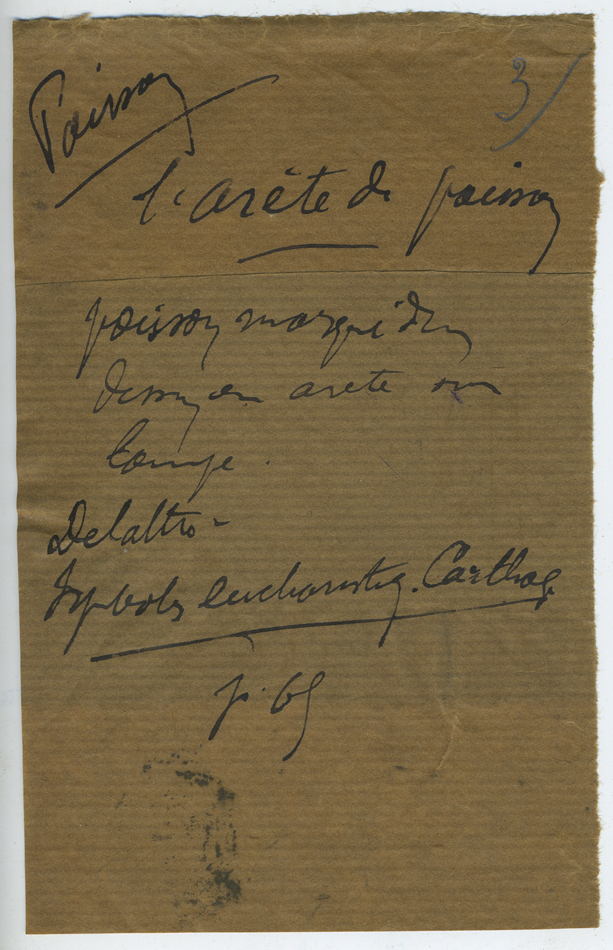 Poisson
3/
l'arête de poisson
poisson marqué d'un
dessin en arete sur
Lampe.
Delattre -
Symboles eucharistiq. Carthag.
p. 69